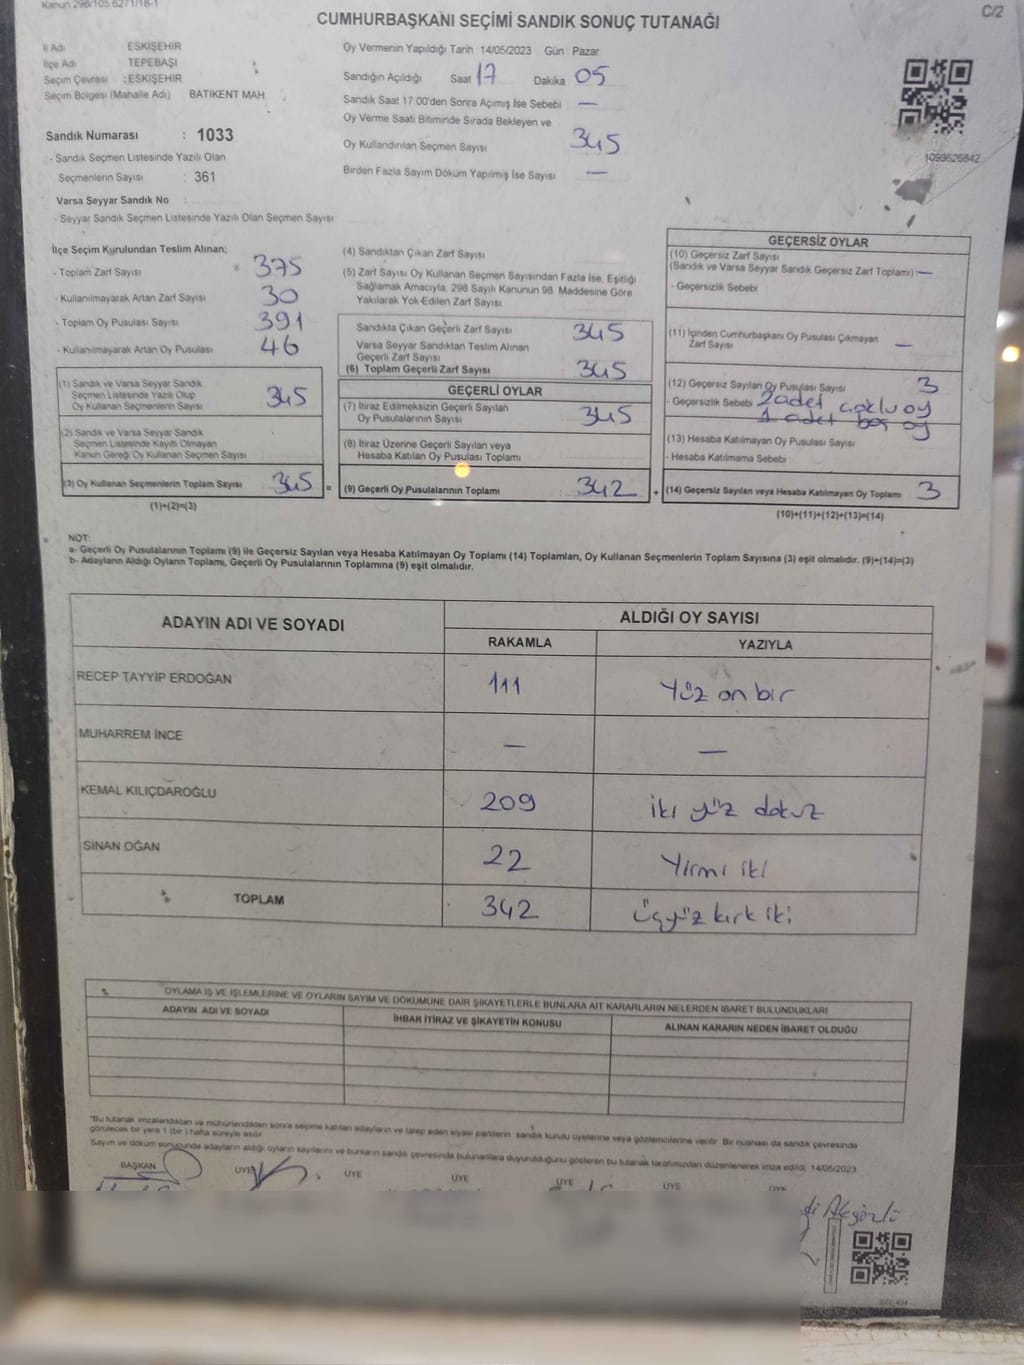 Kanun 298/105.6271/18-1
C/2
CUMHURBAŞKANI SEÇİMİ SANDIK SONUÇ TUTANAĞI
İl Adı ESKİŞEHİR
İlçe Adı TEPEBAŞI
Seçim Çevresi : ESKİŞEHİR
Seçim Bölgesi (Mahalle Adı) BATIKENT MAH
Oy Vermenin Yapıldığı Tarih 14/05/2023 Gün : Pazar
Sandığın Açıldığı Saat 17 Dakika 05
Sandık Saat 17:00'den Sonra Açımış İse Sebebi —
Oy Verme Saati Bitiminde Sırada Bekleyen ve
Oy Kullandırılan Seçmen Sayısı 345
Birden Fazla Sayım Döküm Yapılmış İse Sayısı —
1093626842
Sandık Numarası : 1033
- Sandık Seçmen Listesinde Yazılı Olan
Seçmenlerin Sayısı : 361
Varsa Seyyar Sandık No
- Seyyar Sandık Seçmen Listesinde Yazılı Olan Seçmen Sayısı
İlçe Seçim Kurulundan Teslim Alınan;
- Toplam Zarf Sayısı 375
- Kullanılmayarak Artan Zarf Sayısı 30
- Toplam Oy Pusulası Sayısı 391
- Kullanılmayarak Artan Oy Pusulası 46
(1) Sandık ve Varsa Seyyar Sandık
Seçmen Listesinde Yazılı Olup
Oy Kullanan Seçmenlerin Sayısı 345
(2) Sandık ve Varsa Seyyar Sandık
Seçmen Listesinde Kayıtlı Olmayan
Kanun Gereği Oy Kullanan Seçmen Sayısı
(3) Oy Kullanan Seçmenlerin Toplam Sayısı 345 =
(1)+(2)=(3)
(4) Sandıktan Çıkan Zarf Sayısı
(5) Zarf Sayısı Oy Kullanan Seçmen Sayısından Fazla İse, Eşitliği
Sağlamak Amacıyla, 298 Sayılı Kanunun 98. Maddesine Göre
Yakılarak Yok Edilen Zarf Sayısı
Sandıkta Çıkan Geçerli Zarf Sayısı 345
Varsa Seyyar Sandıktan Teslim Alınan
Geçerli Zarf Sayısı
(6) Toplam Geçerli Zarf Sayısı 345
GEÇERLİ OYLAR
(7) İtiraz Edilmeksizin Geçerli Sayılan
Oy Pusulalarının Sayısı 345
(8) İtiraz Üzerine Geçerli Sayılan veya
Hesaba Katılan Oy Pusulası Toplamı
(9) Geçerli Oy Pusulalarının Toplamı 342 +
GEÇERSİZ OYLAR
(10) Geçersiz Zarf Sayısı
(Sandık ve Varsa Seyyar Sandık Geçersiz Zarf Toplamı) —
- Geçersizlik Sebebi
(11) İçinden Cumhurbaşkanı Oy Pusulası Çıkmayan
Zarf Sayısı —
(12) Geçersiz Sayılan Oy Pusulası Sayısı 3
- Geçersizlik Sebebi 2 adet çoklu oy
1 adet boş oy
(13) Hesaba Katılmayan Oy Pusulası Sayısı
- Hesaba Katılmama Sebebi
(14) Geçersiz Sayılan veya Hesaba Katılmayan Oy Toplamı 3
(10)+(11)+(12)+(13)=(14)
NOT:
a- Geçerli Oy Pusulalarının Toplamı (9) ile Geçersiz Sayılan veya Hesaba Katılmayan Oy Toplamı (14) Toplamları, Oy Kullanan Seçmenlerin Toplam Sayısına (3) eşit olmalıdır. (9)+(14)=(3)
b- Adayların Aldığı Oyların Toplamı, Geçerli Oy Pusulalarının Toplamına (9) eşit olmalıdır.
ADAYIN ADI VE SOYADI ALDIĞI OY SAYISI
RAKAMLA YAZIYLA
RECEP TAYYİP ERDOĞAN 111 Yüz on bir
MUHARREM İNCE — —
KEMAL KILIÇDAROĞLU 209 iki yüz dokuz
SİNAN OĞAN 22 Yirmi iki
TOPLAM 342 Üçyüz kırk iki
OYLAMA İŞ VE İŞLEMLERİNE VE OYLARIN SAYIM VE DÖKÜMÜNE DAİR ŞİKAYETLERLE BUNLARA AİT KARARLARIN NELERDEN İBARET BULUNDUKLARI
ADAYIN ADI VE SOYADI İHBAR İTİRAZ VE ŞİKAYETİN KONUSU ALINAN KARARIN NEDEN İBARET OLDUĞU
*Bu tutanak imzalandıktan ve mühürlendikten sonra seçime katılan adayların ve talep eden siyasi partilerin sandık kurulu üyelerine veya gözlemcilerine verilir. Bir nüshası da sandık çevresinde
görülecek bir yere 1 (bir) hafta süreyle asılır.
Sayım ve döküm sonucunda adayların aldığı oyların sayılarını ve bunların sandık çevresinde bulunanlara duyurulduğunu gösteren bu tutanak tarafımızdan düzenlenerek imza edildi. 14/05/2023
BAŞKAN ÜYE ÜYE ÜYE ÜYE ÜYE ÜYE